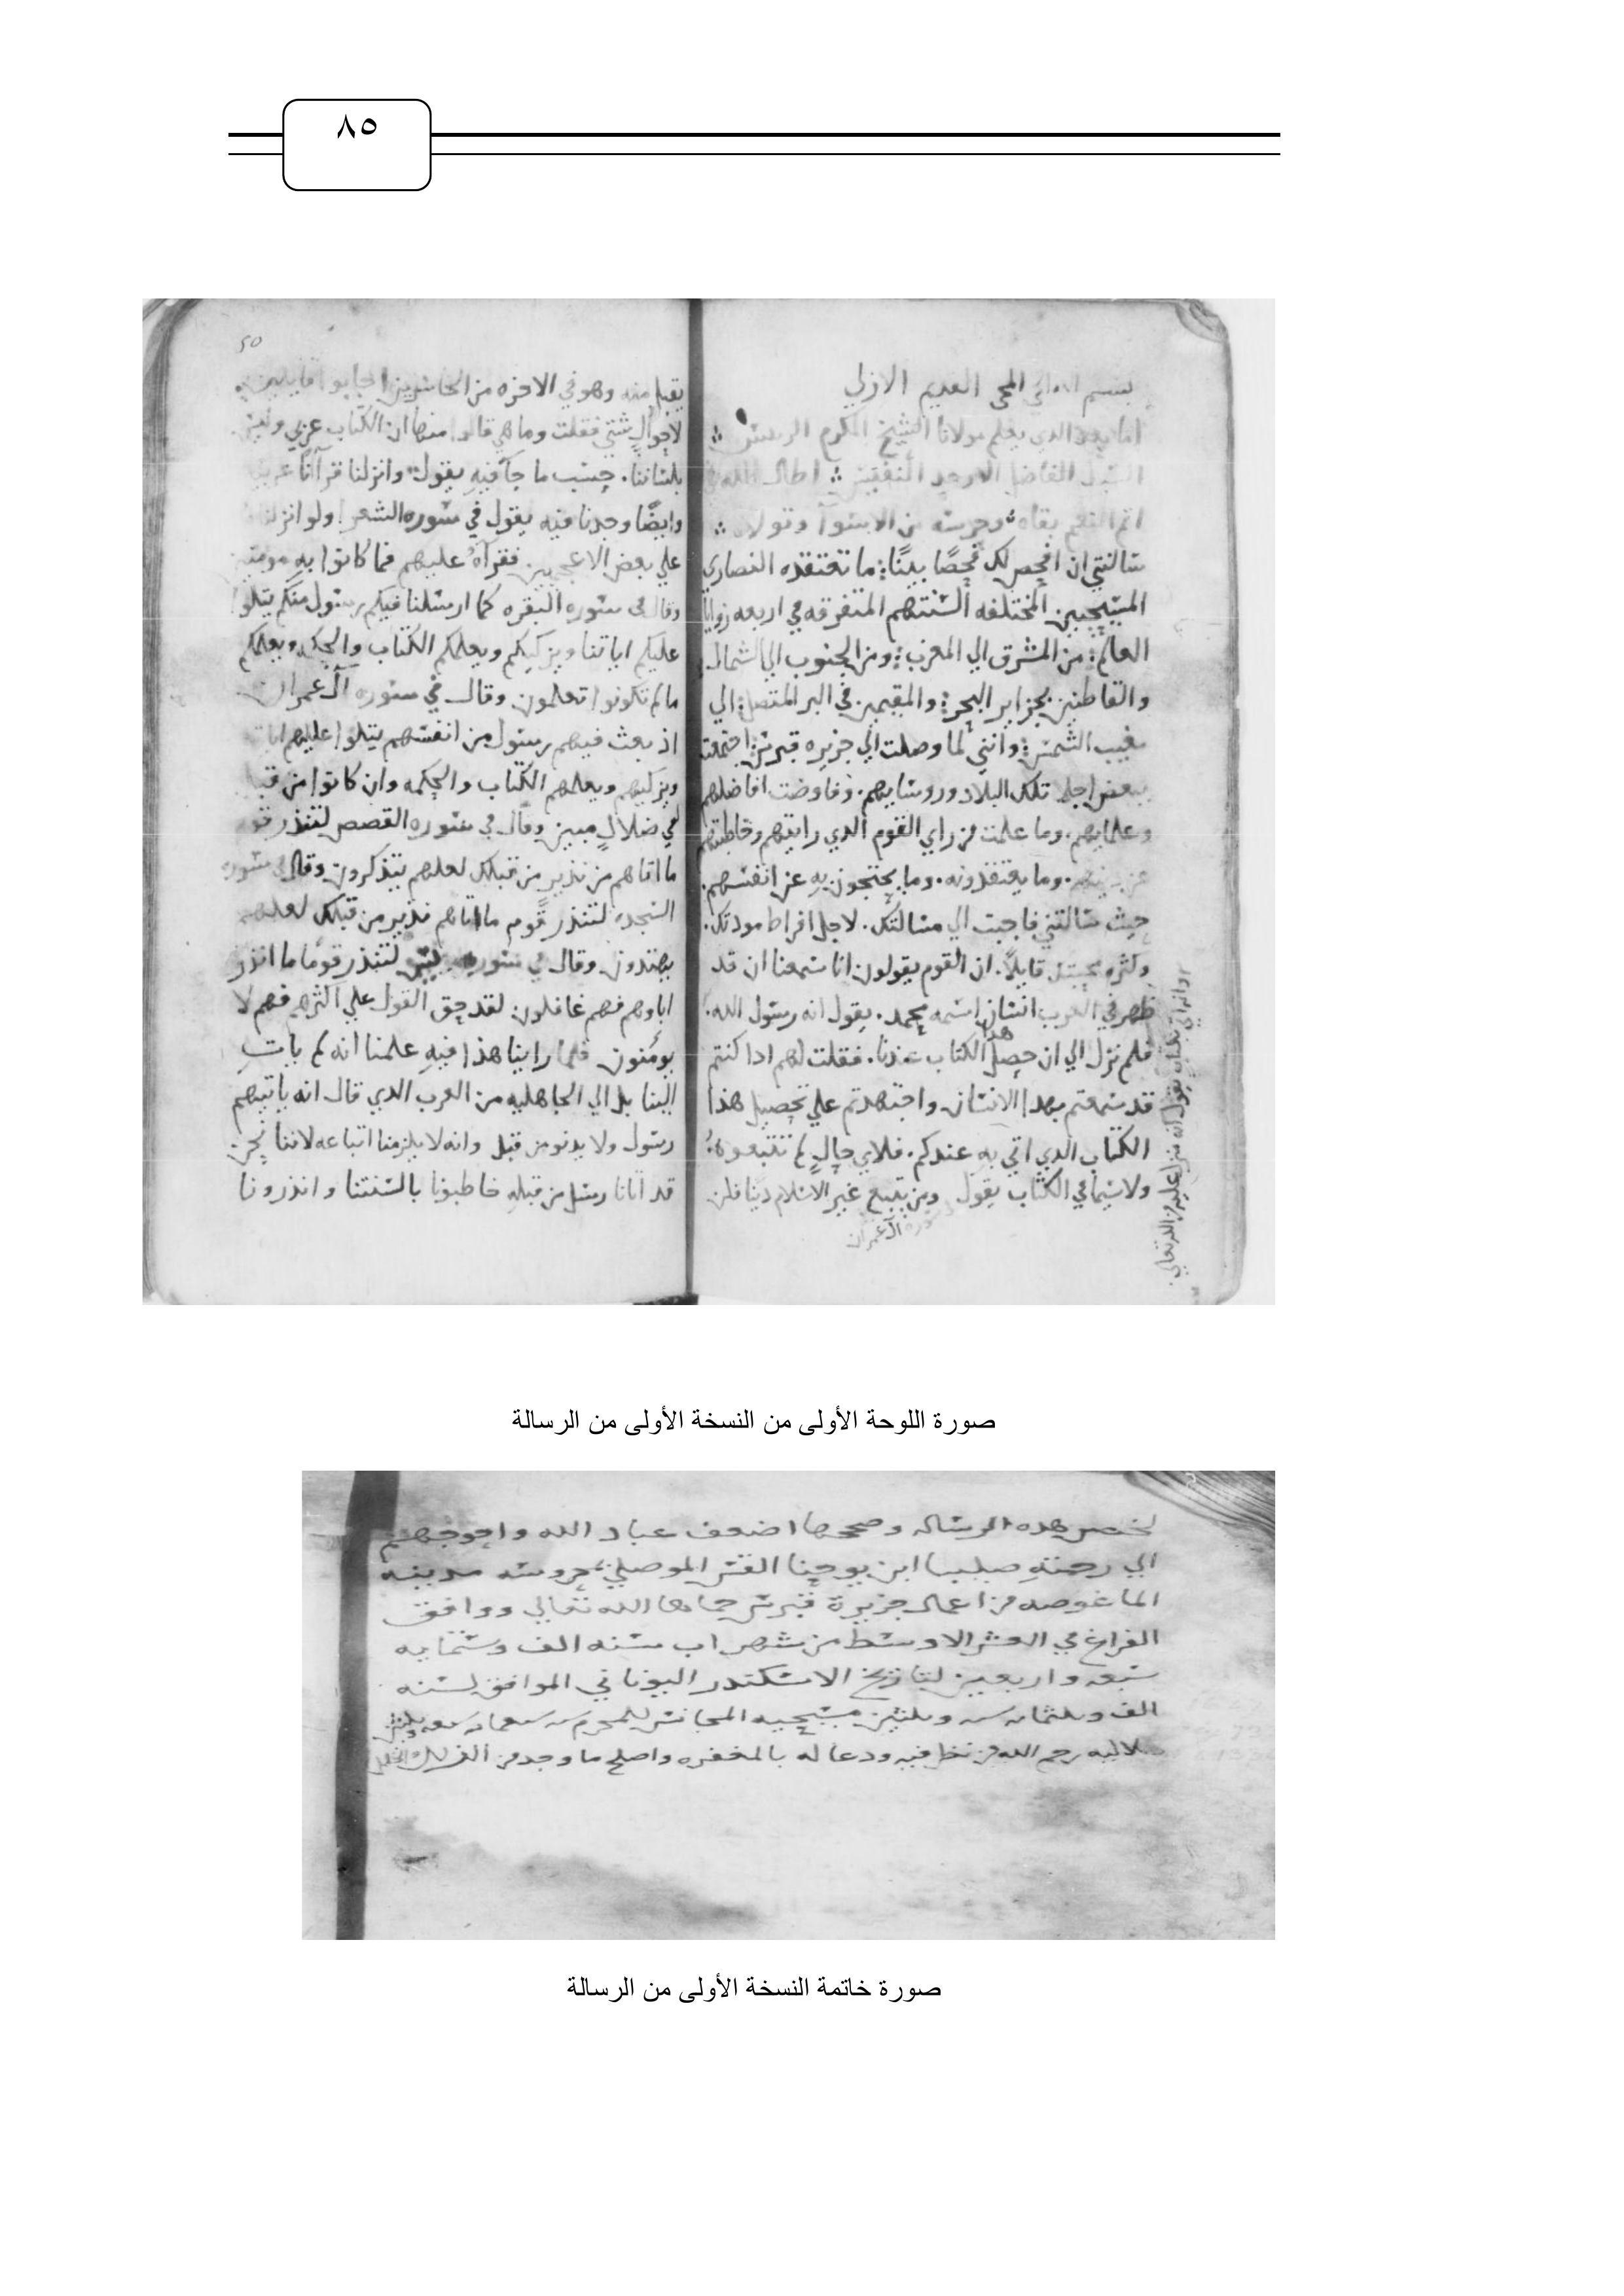 ٨٥
بسم الله الحي المحي القديم الازلي
اما بعد الدي يعلم مولانا الشيخ المكرم الريس
السيد الفاضل الاوحد النفيس اطال الله في
اتم النعم بقاه وحرسه من الاسوآ وتولاه
سالتني ان افحص لك فحصًا بينًا ما تعتقده النصاري
المسيحيين المختلفه السنتهم المتفرقه في اربعه زوايا
العالم من المشرق الي المغرب ومن الجنوب الي الشمال
والقاطنين بجزاير البحر والمقيمين في البر المتصل الي
مغيب الشمس وانني لما وصلت الي جزيره قبرس اجتمعت
ببعض اجلا تلك البلاد وروسايهم. وفاوضت افاضلهم
وعلمايهم. وما علمت من راي القوم الدي رايتهم وخاطبتهم
عن دينهم. وما يعتقدونه. وما يحتجون به عن انفسهم.
حيث سالتني فاجبت الي مسالتك. لاجل افراط مودتك.
وكثره محبتك قايلاً. ان القوم يقولون انا سمعنا ان قد
ظهر في العرب انسان اسمه محمد. يقول انه رسول الله.
فلم نزل الي ان حصل هدا الكتاب عندنا. فقلت لهم ادا كنتم
قد سمعتم بهدا الانسان واجتهدتم علي تحصيل هذا
الكتاب الدي اتي به عندكم. فلاي حالٍ لم تتبعوه
ولا سيما في الكتاب يقول ومن يتبع غير الاسلام دينا فلن
سوره آل عمران
٢٥
يقبل منه وهو في الاخره من الخاسرين اجابوا قايلين
لاحوالٍ شتي فقلت وما هي قالوا منها ان الكتاب عربي وليس
بلساننا. حسب ما جآ فيه يقول وانزلنا قرآنًا عربيا
وايضًا وجدنا فيه يقول في سوره الشعرا ولو انزلناه
علي بعض الاعجميين فقرآهُ عليهم فما كانوا به مومنين
وقال في سوره البقره كما ارسلنا فيكم رسول منكم يتلوا
عليكم اياتنا ويزكيكم ويعلمكم الكتاب والحكمه ويعلمكم
ما لم تكونوا تعلمون وقال في سوره آل عمران
اذ بعث فيهم رسول من انفسهم يتلوا عليهم اياته
ويزكيهم ويعلمهم الكتاب والحكمه وان كانوا من قبل
لفي ضلالٍ مبين وقال في سوره القصص لتنذر قوم
ما اتاهم من نذير من قبلك لعلهم يتذكرون وقال في سوره
السجده لتنذر قوم ما اتاهم نذير من قبلك لعلهم
يهتدون وقال في سوره يس لتنذر قومًا ما انذر
اباوهم فهم غافلون لقد حق القول علي اكثرهم فهم لا
يومنون فلما راينا هذا فيه علمنا انه لم يات
الينا بل الي الجاهليه من العرب الدي قال انه ياتيهم
رسول ولا يدنو من قبل وانه لا يلزمنا اتباعه لاننا نحن
قد اتانا رسل من قبله خاطبونا بالسنتنا وانذرونا
صورة اللوحة الأولى من النسخة الأولى من الرسالة
لخص هده الرساله وصححها اضعف عباد الله واحوجهم
الي رحمته صليبا ابن يوحنا القس الموصلي بمحروسه مدينه
الماغوصه من اعمال جزيرة قبرس حماها الله تعالي ووافق
الفراغ في العشر الاوسط من شهر اب سنه الف وستمايه
سبعه واربعين لتاريخ الاسكندر اليوناني الموافق لسنه
الف وثلثمايه وثلثين مسيحيه المجانس للمحرم
هلاليه رحم الله من نظر فيه ودعا له بالمغفره واصلح ما وجد من الزلل والخلل
صورة خاتمة النسخة الأولى من الرسالة